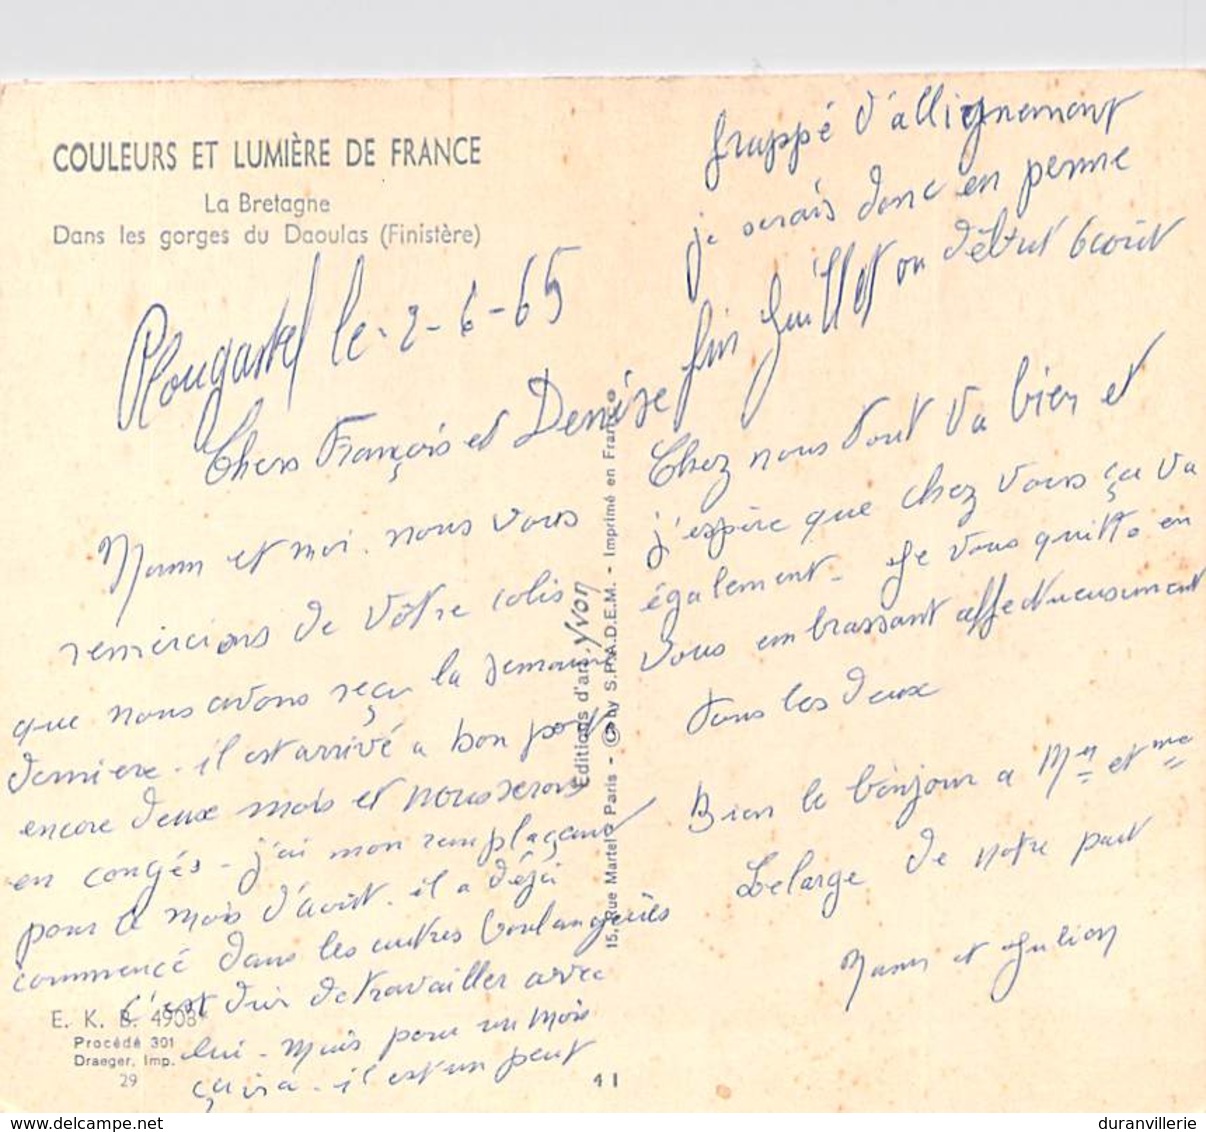 COULEURS ET LUMIÈRE DE FRANCE
La Bretagne
Dans les gorges du Daoulas (Finistère)
Plougastel le 2-6-65
Chers François et Denise
Mam et moi. nous vous
remercions de vôtre colis
que nous avons reçu la semaine
dernière. il est arrivé a bon port
encore deux mois et nous serons
en congés - j'ai mon remplaçant
pour le mois d'août. il a déjà
commencé dans les autres boulangeries
c'est dur de travailler avec
lui - mais pour un mois
ça ira - il est un peut
frappé d'allignement
je serais donc en perme
fin juillet ou début août
Chez nous tout va bien et
j'espère que chez vous ça va
également - Je vous quitte en
vous embrassant affectueusement
tous les deux
Bien le bonjour a Mr et Me
Lelarge de notre part
Mam et Julien
Editions d'art Yvon
15, Rue Martel - Paris - © by S.P.A.D.E.M. - Imprimé en France
E. K. B. 4908*
Procédé 301
Draeger, Imp.
29
41
duranvillerie
delcampe.net